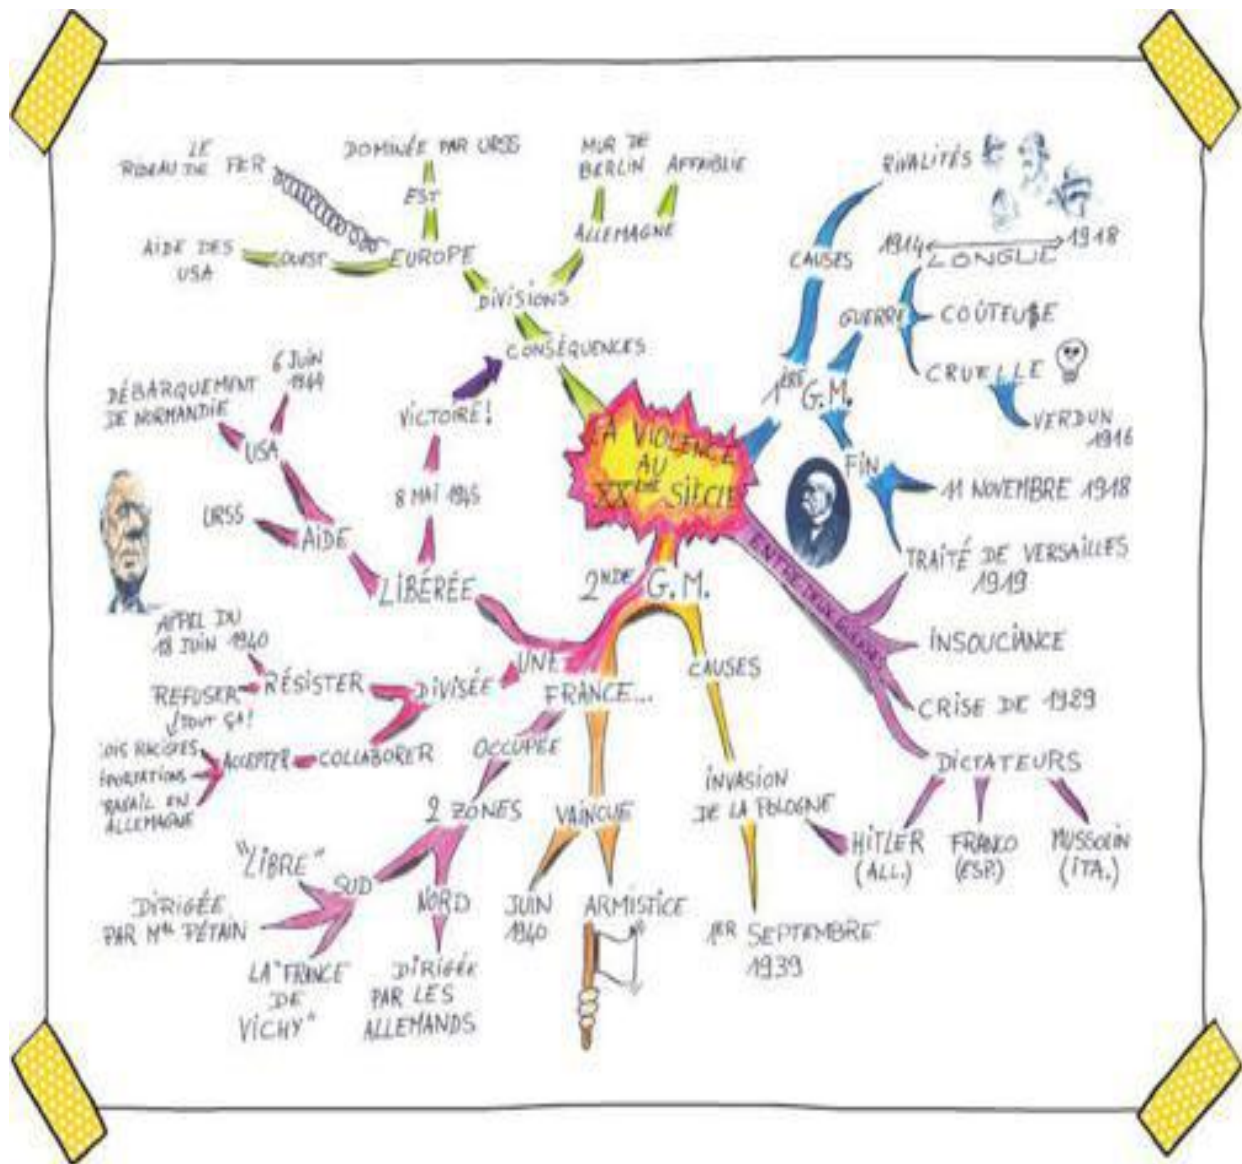 LA VIOLENCE
AU
XXème SIÈCLE
1ÈRE G.M.
CAUSES
RIVALITÉS
GUERRE
1914 1918
LONGUE
COÛTEUSE
CRUELLE
VERDUN
1916
FIN
11 NOVEMBRE 1918
TRAITÉ DE VERSAILLES
1919
ENTRE DEUX GUERRES
INSOUCIANCE
CRISE DE 1929
DICTATEURS
HITLER
(ALL.)
FRANCO
(ESP.)
MUSSOLIN
(ITA.)
2NDE G.M.
CAUSES
INVASION
DE LA POLOGNE
1ER SEPTEMBRE
1939
UNE
FRANCE...
VAINCUE
JUIN
1940
ARMISTICE
OCCUPÉE
2 ZÔNES
NORD
DIRIGÉE
PAR LES
ALLEMANDS
SUD
"LIBRE"
DIRIGÉE
PAR Mal PÉTAIN
LA "FRANCE
DE
VICHY"
DIVISÉE
RÉSISTER
APPEL DU
18 JUIN 1940
REFUSER
TOUT ÇA!
COLLABORER
ACCEPTER
OIS RACISTES
PORTATIONS
RAVAIL EN
ALLEMAGNE
LIBÉRÉE
AIDE
URSS
USA
DÉBARQUEMENT
DE NORMANDIE
6 JUIN
1944
8 MAI 1945
VICTOIRE!
CONSÉQUENCES
DIVISIONS
EUROPE
OUEST
AIDE DES
USA
LE
RIDEAU DE FER
EST
DOMINÉE PAR URSS
ALLEMAGNE
MUR DE
BERLIN
AFFAIBLIE